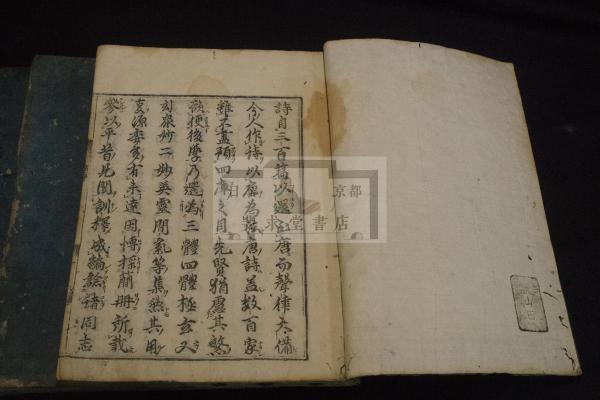 詩自三百篇以還至唐而聲律大備
今人作詩以唐為 唐詩益數百家
雖不盡 四庫之目先賢猶慮其繁
欲便後學乃選為三體四體極玄又
玄眾妙二妙英靈間氣等集然其用
意深 多有未達因博採簡冊所載
參以平昔見聞訓釋成編 諸同志
求堂書店
京都